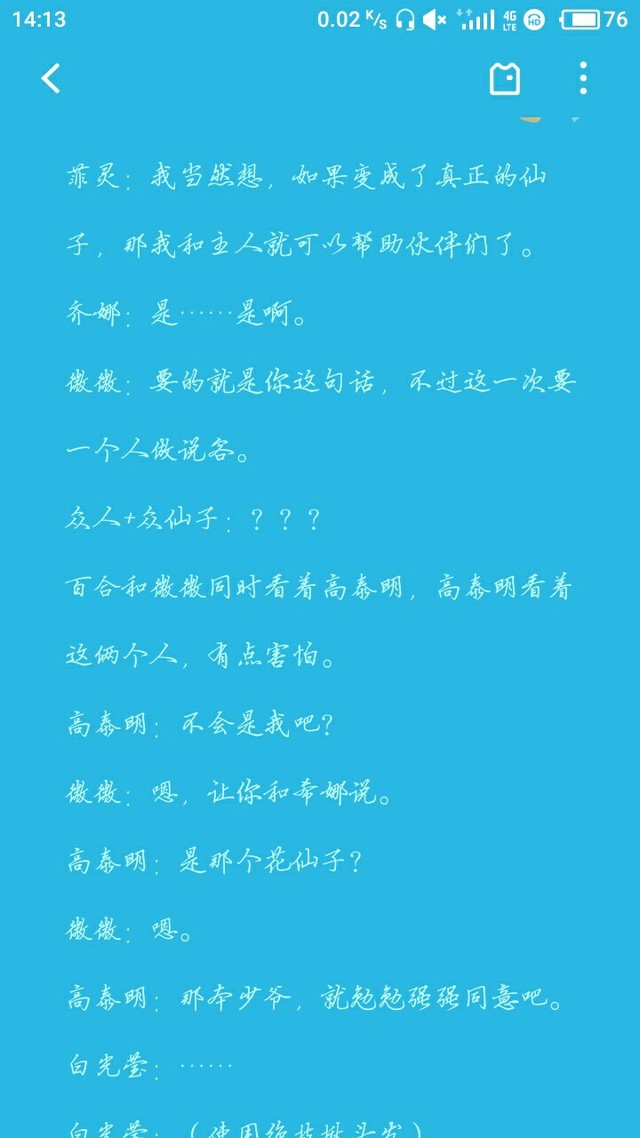 14:13
0.02 K/S 4G LTE HD 76
菲灵：我当然想，如果变成了真正的仙
子，那我和主人就可以帮助伙伴们了。
齐娜：是……是啊。
微微：要的就是你这句话，不过这一次要
一个人做说客。
众人+众仙子：？？？
百合和微微同时看着高泰明，高泰明看着
这俩个人，有点害怕。
高泰明：不会是我吧？
微微：嗯，让你和希娜说。
高泰明：是那个花仙子？
微微：嗯。
高泰明：那本少爷，就勉勉强强同意吧。
白光莹：……
白光莹：（使用绝技揪头发）